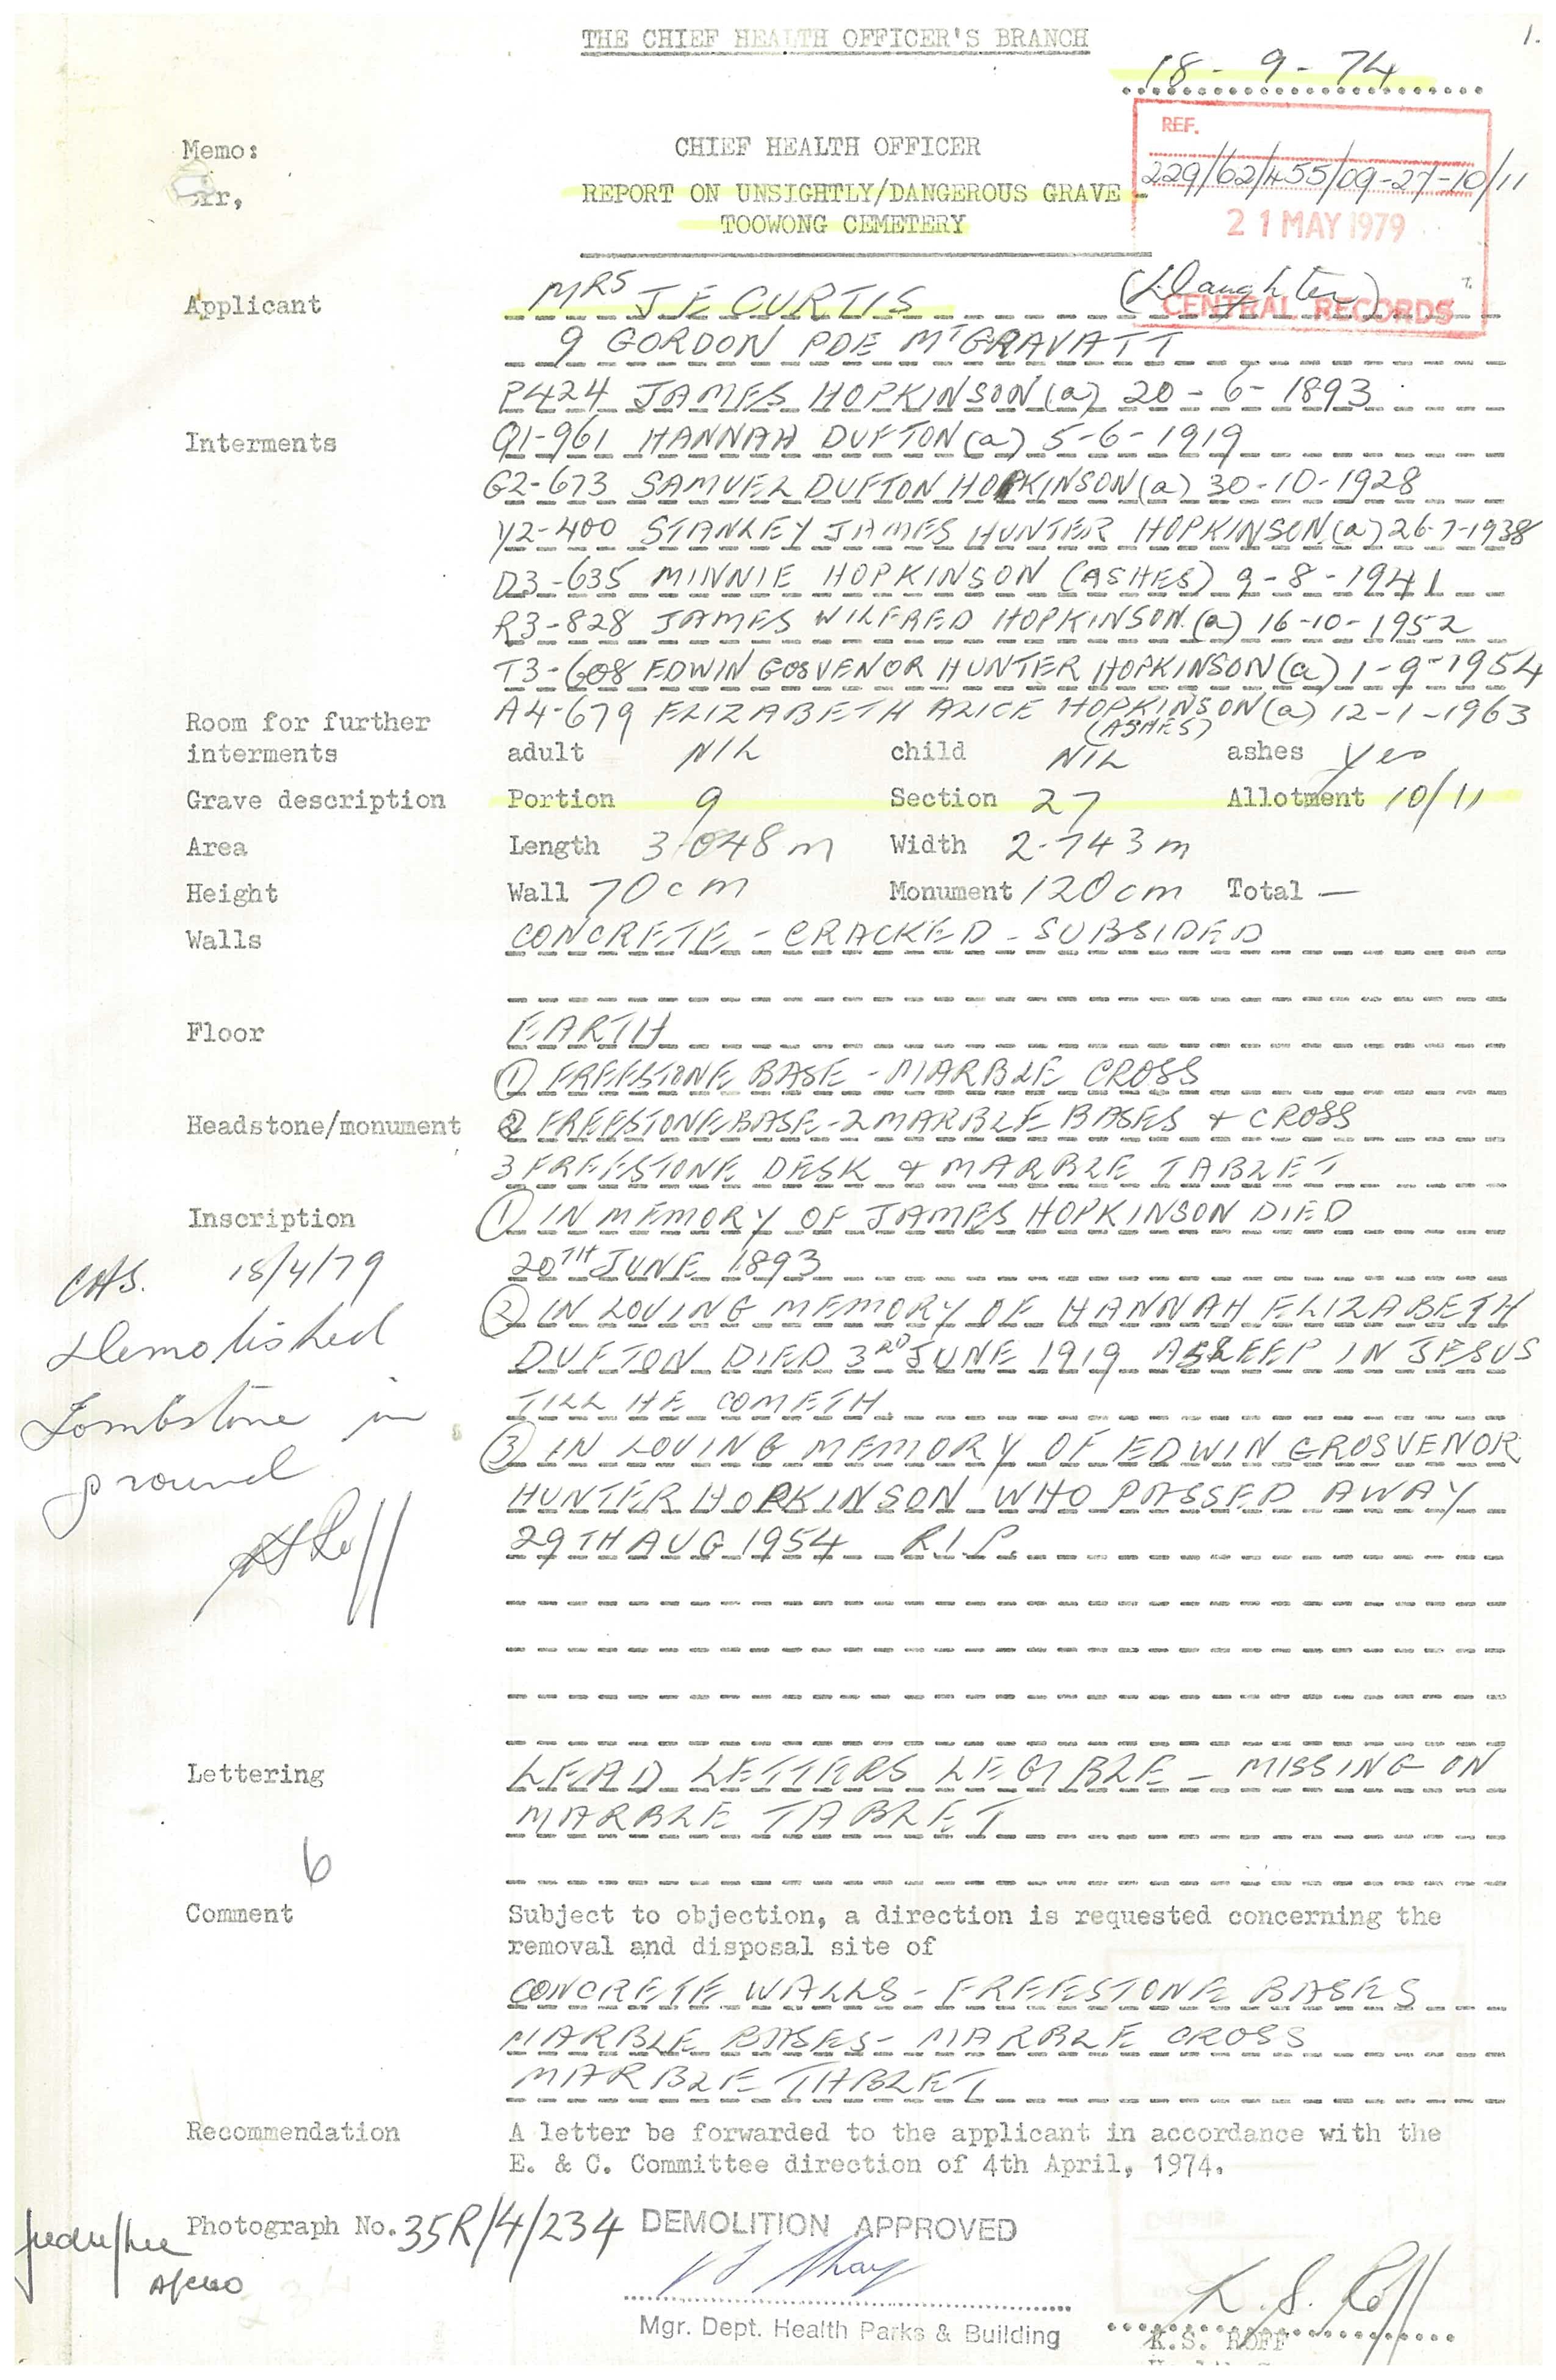 1.
THE CHIEF HEALTH OFFICER'S BRANCH
18 - 9 - 74
Memo:
CHIEF HEALTH OFFICER
REF.
229/62/455/09-27-10/11
REPORT ON UNSIGHTLY/DANGEROUS GRAVE -
TOOWONG CEMETERY
21 MAY 1979
CENTRAL RECORDS
Applicant MRS J E CURTIS (Daughter)
9 GORDON PDE MT GRAVATT
P424 JAMES HOPKINSON (a) 20 - 6 - 1893
Interments Q1-961 HANNAH DUFTON (a) 5-6-1919
G2-673 SAMUEL DUFTON HOPKINSON (a) 30-10-1928
Y2-400 STANLEY JAMES HUNTER HOPKINSON (a) 26-7-1938
D3-635 MINNIE HOPKINSON (ASHES) 9-8-1941
R3-828 JAMES WILFRED HOPKINSON (a) 16-10-1952
T3-608 EDWIN GOSVENOR HUNTER HOPKINSON (a) 1-9-1954
A4-679 ELIZABETH ALICE HOPKINSON (a) 12-1-1963
(ASHES)
Room for further
interments adult NIL child NIL ashes yes
Grave description Portion 9 Section 27 Allotment 10/11
Area Length 3.048 m Width 2.743 m
Height Wall 70 cm Monument 120 cm Total —
Walls CONCRETE - CRACKED - SUBSIDED
Floor EARTH
① FREESTONE BASE - MARBLE CROSS
Headstone/monument ② FREESTONE BASE - 2 MARBLE BASES & CROSS
3 FREESTONE DESK & MARBLE TABLET
Inscription ① IN MEMORY OF JAMES HOPKINSON DIED
20TH JUNE 1893
② IN LOVING MEMORY OF HANNAH ELIZABETH
DUFTON DIED 3RD JUNE 1919 ASLEEP IN JESUS
TILL HE COMETH.
③ IN LOVING MEMORY OF EDWIN GROSVENOR
HUNTER HOPKINSON WHO PASSED AWAY
29TH AUG 1954 R.I.P.
18/4/79
Demolished
Tombstone in
ground
Lettering LEAD LETTERS LEGIBLE - MISSING ON
MARBLE TABLET
6
Comment Subject to objection, a direction is requested concerning the
removal and disposal site of
CONCRETE WALLS - FREESTONE BASES
MARBLE BASES - MARBLE CROSS
MARBLE TABLET
Recommendation A letter be forwarded to the applicant in accordance with the
E. & C. Committee direction of 4th April, 1974.
Photograph No. 35R/4/234 DEMOLITION APPROVED
Mgr. Dept. Health Parks & Building
K. S. Roff
K.S. ROFF